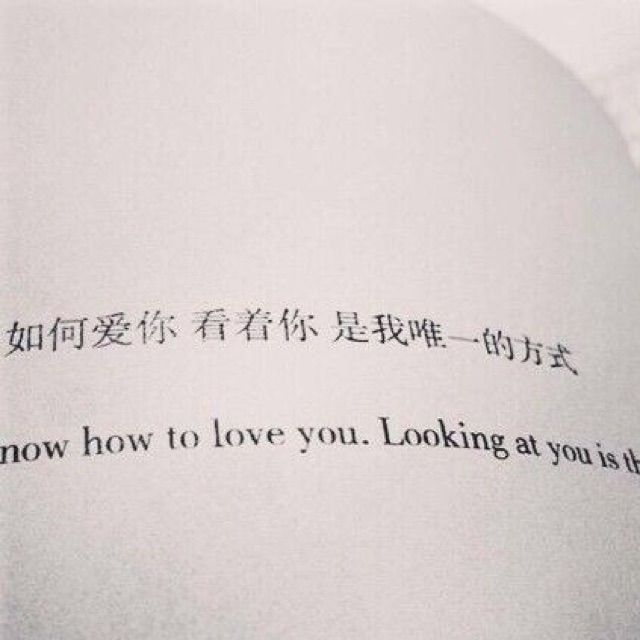 如何爱你 看着你 是我唯一的方式
now how to love you. Looking at you is th